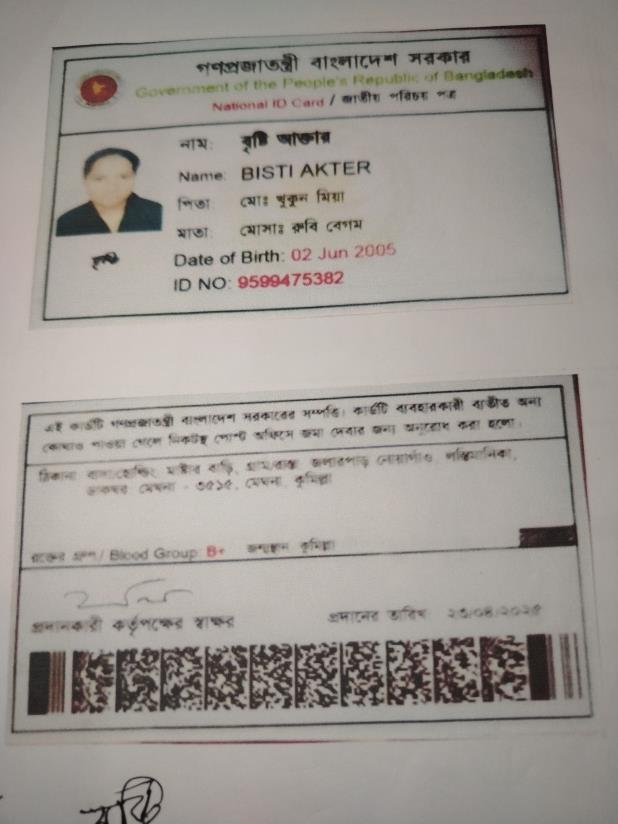 গণপ্রজাতন্ত্রী বাংলাদেশ সরকার
Government of the People's Republic of Bangladesh
National ID Card / জাতীয় পরিচয় পত্র
নাম: বৃষ্টি আক্তার
Name: BISTI AKTER
পিতা: মোঃ খুকুন মিয়া
মাতা: মোসাঃ রুবি বেগম
Date of Birth: 02 Jun 2005
ID NO: 9599475382
বৃষ্টি
এই কার্ডটি গণপ্রজাতন্ত্রী বাংলাদেশ সরকারের সম্পত্তি। কার্ডটি ব্যবহারকারী ব্যতীত অন্য
কোথাও পাওয়া গেলে নিকটস্থ পোস্ট অফিসে জমা দেবার জন্য অনুরোধ করা হলো।
ঠিকানা: বাসা/হোল্ডিং: মাষ্টার বাড়ি, গ্রাম/রাস্তা:
ডাকঘর: মেঘনা - ৩৫১৫, মেঘনা, কুমিল্লা
রক্তের গ্রুপ / Blood Group: B+ জন্মস্থান: কুমিল্লা
প্রদানকারী কর্তৃপক্ষের স্বাক্ষর প্রদানের তারিখ:
বৃষ্টি